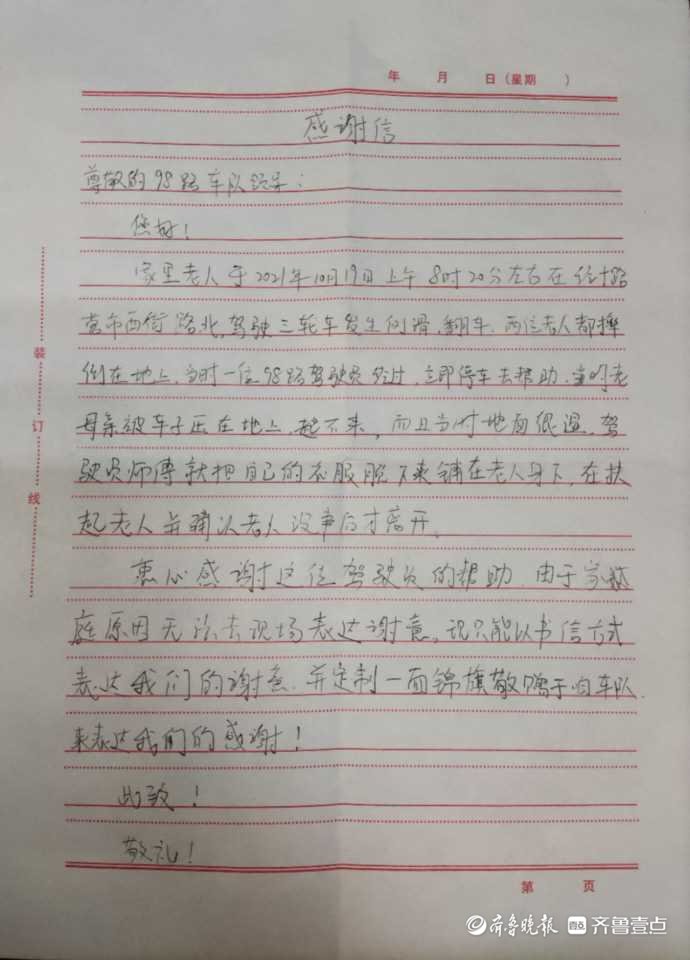 年 月 日(星期 )
感谢信
尊敬的98路车队领导:
您好!
家里老人于2021年10月19日上午8时20分左右在经十路
营市西街路北,驾驶三轮车发生侧滑,翻车.两位老人都摔
倒在地上,当时一位98路驾驶员路过,立即停车去帮助,当时老
母亲被车子压在地上,起不来,而且当时地面很湿,驾
驶员师傅就把自己的衣服脱下来铺在老人身下,在扶
起老人并确认老人没事后才离开。
衷心感谢这位驾驶员的帮助,由于家
庭原因无法去现场表达谢意,现只能以书信方式
表达我们的谢意,并定制一面锦旗敬赠于贵车队
来表达我们的感谢!
此致!
敬礼!
第 页
装
订
线
齐鲁晚报 齐鲁壹点